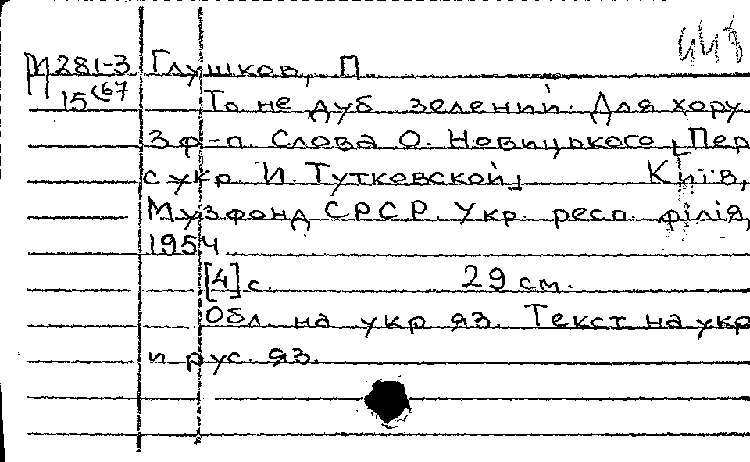 448
М 281-3 Глушков, П.
15(67 То не дуб зелений. Для хору
з ф-п. Слова О. Новицького, Пер
с укр И. Тутковской, Київ,
Музфонд СРСР. Укр. респ. філія,
1954.
[4] с. 29 см.
Обл. на укр яз. Текст на укр
и рус. яз.